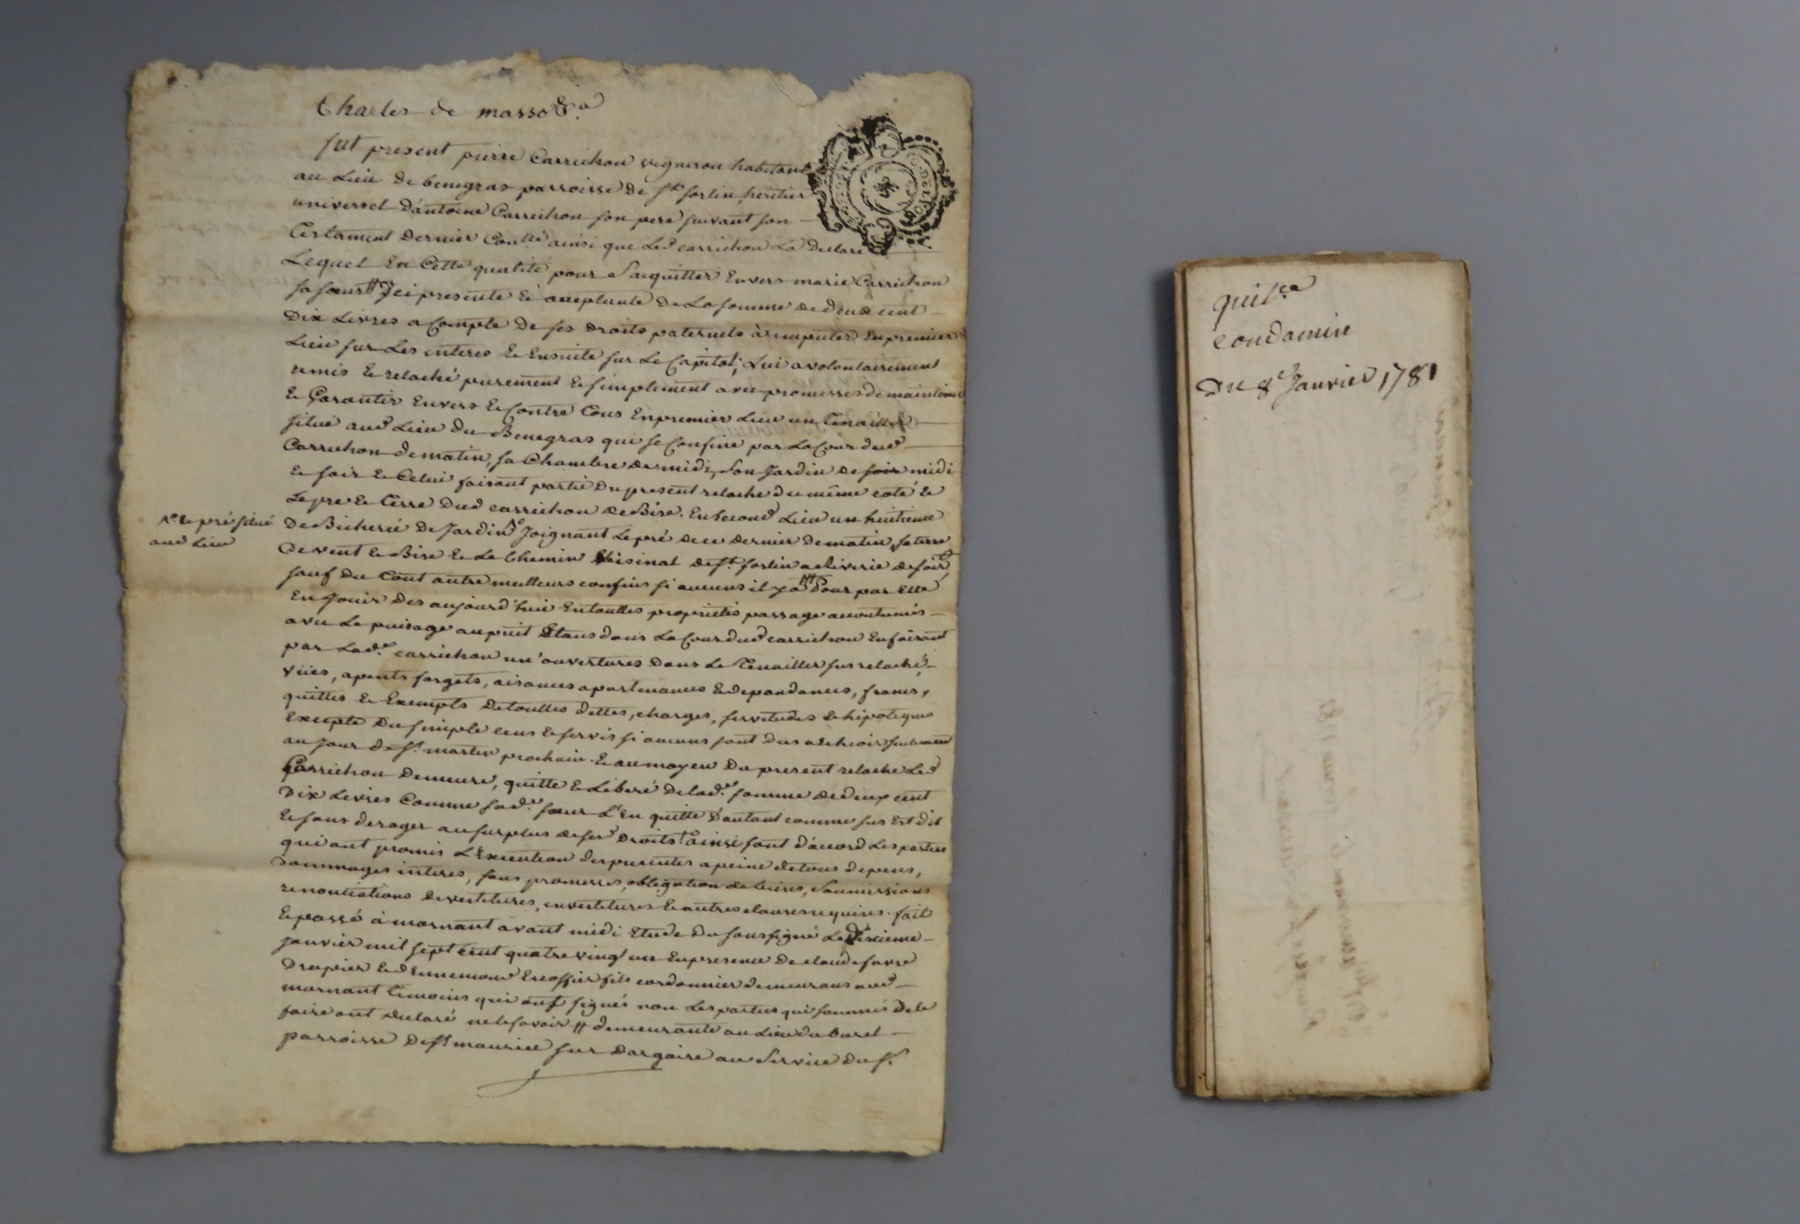 Charles de masso &.a
fut present pierre Carrichon vigneron habitant
au Lieu de benegras parroisse de st sorlin, heritier
universel d'antoine Carrichon son pere suivant son
testament dernier ainsi que Led carrichon La declare
Lequel En Cette qualité pour S'aquitter Envers marie Carrichon
sa sœur # Ici presente Et aceptante de La somme de deux cent
Dix Livres a Compte de ses droits paternels à imputer En premier
Lieu sur Les interes Et Ensuite sur Le Capital, Lui a volontairement
remis Et relaché purement Et simplement avec promesses de maintenir
Et Garantir Envers Et Contre tous En premier Lieu un tenaillier
situé aud Lieu du Benegras qui se Confine par La Cour dud
Carrichon de matin, sa Chambre de midi, son Jardin de soir midi
Et soir Et Celui faisant partie du present relaché du même coté Et
Le pre Et terre dud carrichon de Bise. En second Lieu un huitieme
De Bicherée De Jardin Joignant Le pré de ce dernier de matin, sa terre
De vent Et Bise Et Le Chemin de st sorlin a de soir
sauf du tout autre meilleurs confins si aucuns il y a Pour par Elle
En Jouir Des aujourd'hui En touttes proprietés passage acoutumés
avec Le puisage au puit Etans dans La Cour dud carrichon En faisant
par Lade carrichon un'ouvertures dans Le tenaillier sus relaché,
vües, apents forgets, aisances apartenances & dependances, francs,
quittes Et Exempts De touttes dettes, charges, servitudes Et hipoteques
Excepté Du simple cens Et servis si aucuns sont dus a Echeoir seulement
au Jour De st martin prochain. Et au moyen Du present relaché Led
Carrichon Demeure, quitte Et Liberé De lade somme de deux cent
Dix Livres Comme sade sœur L'En quitte D'autant comme sus Est dit
Et sans deroger au surplus de ses Droits ainsi sont d'acord Les parties
qui ont promis L'Execution des presentes a peine de tous depens,
dommages interes, sous promesses, obligation de biens, soumissions
renontiations devestitures, investitures Et autres clauses requises. fait
Et passé à mornant avant midi Etude Du soussigné Le
Janvier mil sept cent quatre vingt un En presence De claude favre
Drapier Et d'Ennemond Escoffier fils cordonnier demeurans aud
mornant temoins qui ont signés non Les parties qui sommés de le
faire ont declaré ne le savoir # demeurante au Lieu du
parroisse De st maurice sur Dargoire au Service du sr
Et le pré situé
aud Lieu
quitce
condamin
Du 8e Janvier 1781